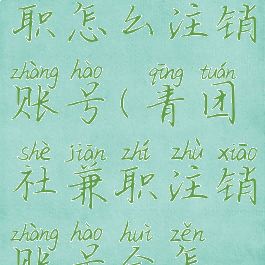 职怎么注销
zhàng hào qīng tuán
账号(青团
shè jiān zhí zhù xiāo
社兼职注销
zhàng hào huì zěn
账号会怎